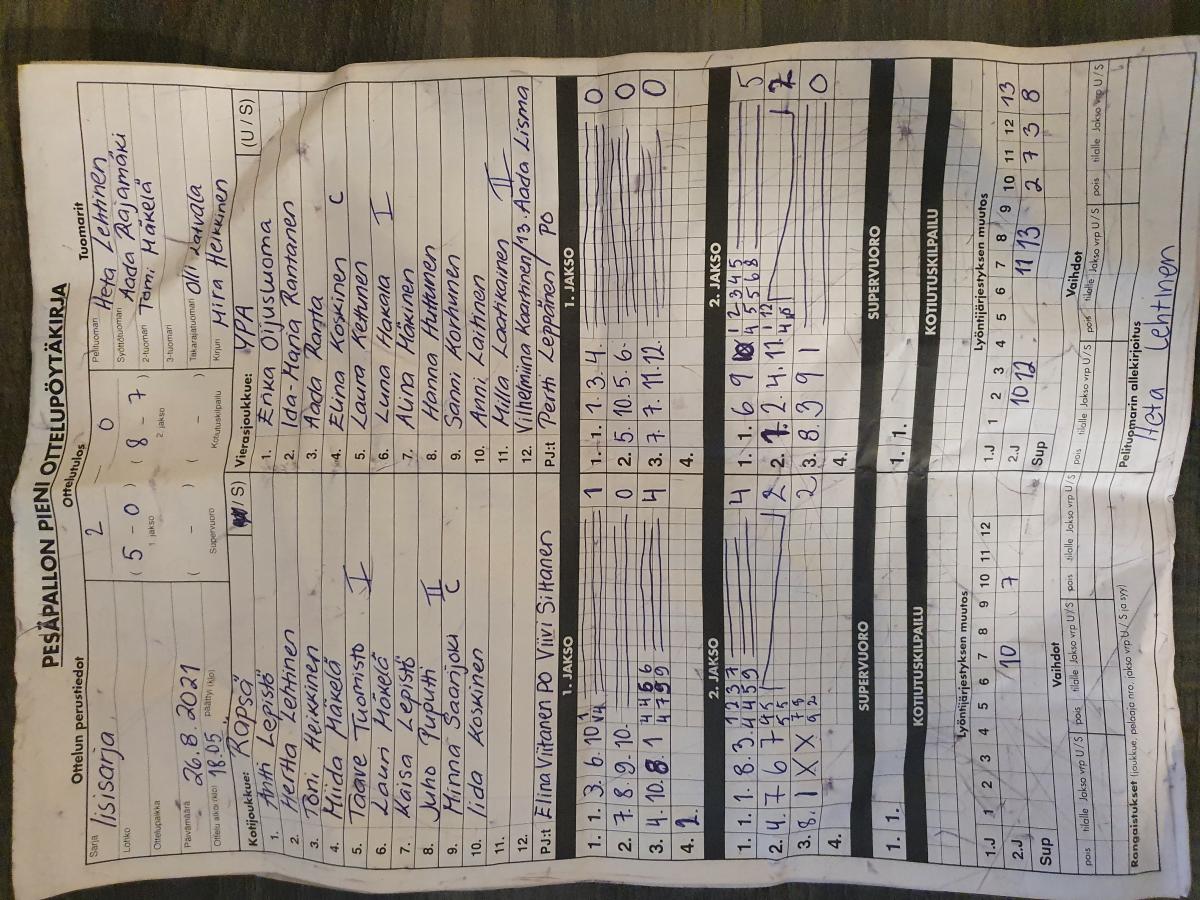 PESÄPALLON PIENI OTTELUPÖYTÄKIRJA
Ottelun perustiedot
Sarja Iisisarja
Lohko
Ottelupaikka
Päivämäärä 26.8.2021
Ottelu alkoi (klo) 18.05 päättyi (klo)
Ottelutulos
2 – 0
( 5 – 0 ) ( 8 – 7 )
1. jakso 2. jakso
( – ) ( – )
Supervuoro Kotiutuskilpailu
Tuomarit
Pelituomari Heta Lehtinen
Syöttötuomari Aada Rajamäki
2-tuomari Tomi Mäkelä
3-tuomari
Takarajatuomari Olli Latvala
Kirjuri Mira Heikkinen
Kotijoukkue: Räpsä (U / S)
1. Antti Lepistö
2. Hertta Lehtinen
3. Toni Heikkinen
4. Miida Mäkelä
5. Taave Tuomisto I
6. Lauri Mäkelä
7. Kaisa Lepistö
8. Juho Puputti II
9. Minna Saarijoki C
10. Iida Koskinen
11.
12.
PJ:t Elina Viitanen PO Viivi Siltanen
Vierasjoukkue: YPA (U / S)
1. Erika Oijusluoma
2. Ida-Maria Rantanen
3. Aada Ranta
4. Elina Koskinen C
5. Laura Kettunen
6. Luna Hakala I
7. Alina Mäkinen
8. Hanna Huttunen
9. Sanni Korhonen
10. Anni Laitinen
11. Milla Laatikainen II
12. Vilhelmiina Kaartinen/13. Aada Lisma
PJ:t Pertti Leppänen/PO
1. JAKSO
1. 1. 3. 6. 10 1
2. 7. 8. 9. 10. 0
3. 4. 10. 8. 1 4
4. 2.
1. JAKSO
1. 1. 1. 3. 4. 0
2. 5. 10. 5. 6. 0
3. 7. 7. 11. 12. 0
4.
2. JAKSO
1. 1. 1. 8. 3. 4
2. 4. 7 6 7 2
3. 8. 1 X X 2
4.
2. JAKSO
1. 1. 6 9 5
2. 2. 4. 11. 2
3. 8. 3 9 1 0
4.
SUPERVUORO
1. 1.
SUPERVUORO
1. 1.
KOTIUTUSKILPAILU
KOTIUTUSKILPAILU
Lyöntijärjestyksen muutos
1 2 3 4 5 6 7 8 9 10 11 12
1.J
2.J 10 7
Sup
Lyöntijärjestyksen muutos
1 2 3 4 5 6 7 8 9 10 11 12 13
1.J 11 13 2 7 3 8
2.J 10 12
Sup
Vaihdot
pois tilalle Jakso vrp U / S pois tilalle Jakso vrp U / S pois tilalle Jakso vrp U / S
Vaihdot
pois tilalle Jakso vrp U / S pois tilalle Jakso vrp U / S pois tilalle Jakso vrp U / S
Rangaistukset (joukkue, pelaaja nro, jakso vrp U / S ja syy)
Pelituomarin allekirjoitus
Heta Lehtinen